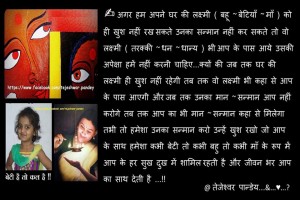 ✍ अगर हम अपने घर की लक्ष्मी ( बहू ~बेटियाँ ~माँ ) को
ही खुश नहीं रख सकते उनका सन्मान नहीं कर सकते तो वो
लक्ष्मी ( तरक्की ~धन ~धान्य ) भी आप के पास आये उसकी
अपेक्षा हमें नहीं करनी चाहिए...क्यों की जब तक घर की
लक्ष्मी ही खुश नहीं रहेगी तब तक वो लक्ष्मी भी कहा से आप
के पास आएगी और जब तक उनका मान ~सन्मान आप नहीं
करोगे तब तक आप का भी मान ~सन्मान कहा से मिलेगा
तभी तो हमेशा उनका सन्मान करो उन्हें खुश रखो जो आप
के साथ हमेशा कभी बेटी तो कभी बहु तो कभी माँ के रूप में
आप के हर सुख दुख में शामिल रहती है और जीवन भर आप
का साथ देती है ...!!
@ तेजेश्वर पान्डेय...&...♥...?
https://www.facebook.com/tejeshwar.pandey
बेटी है तो कल है !!